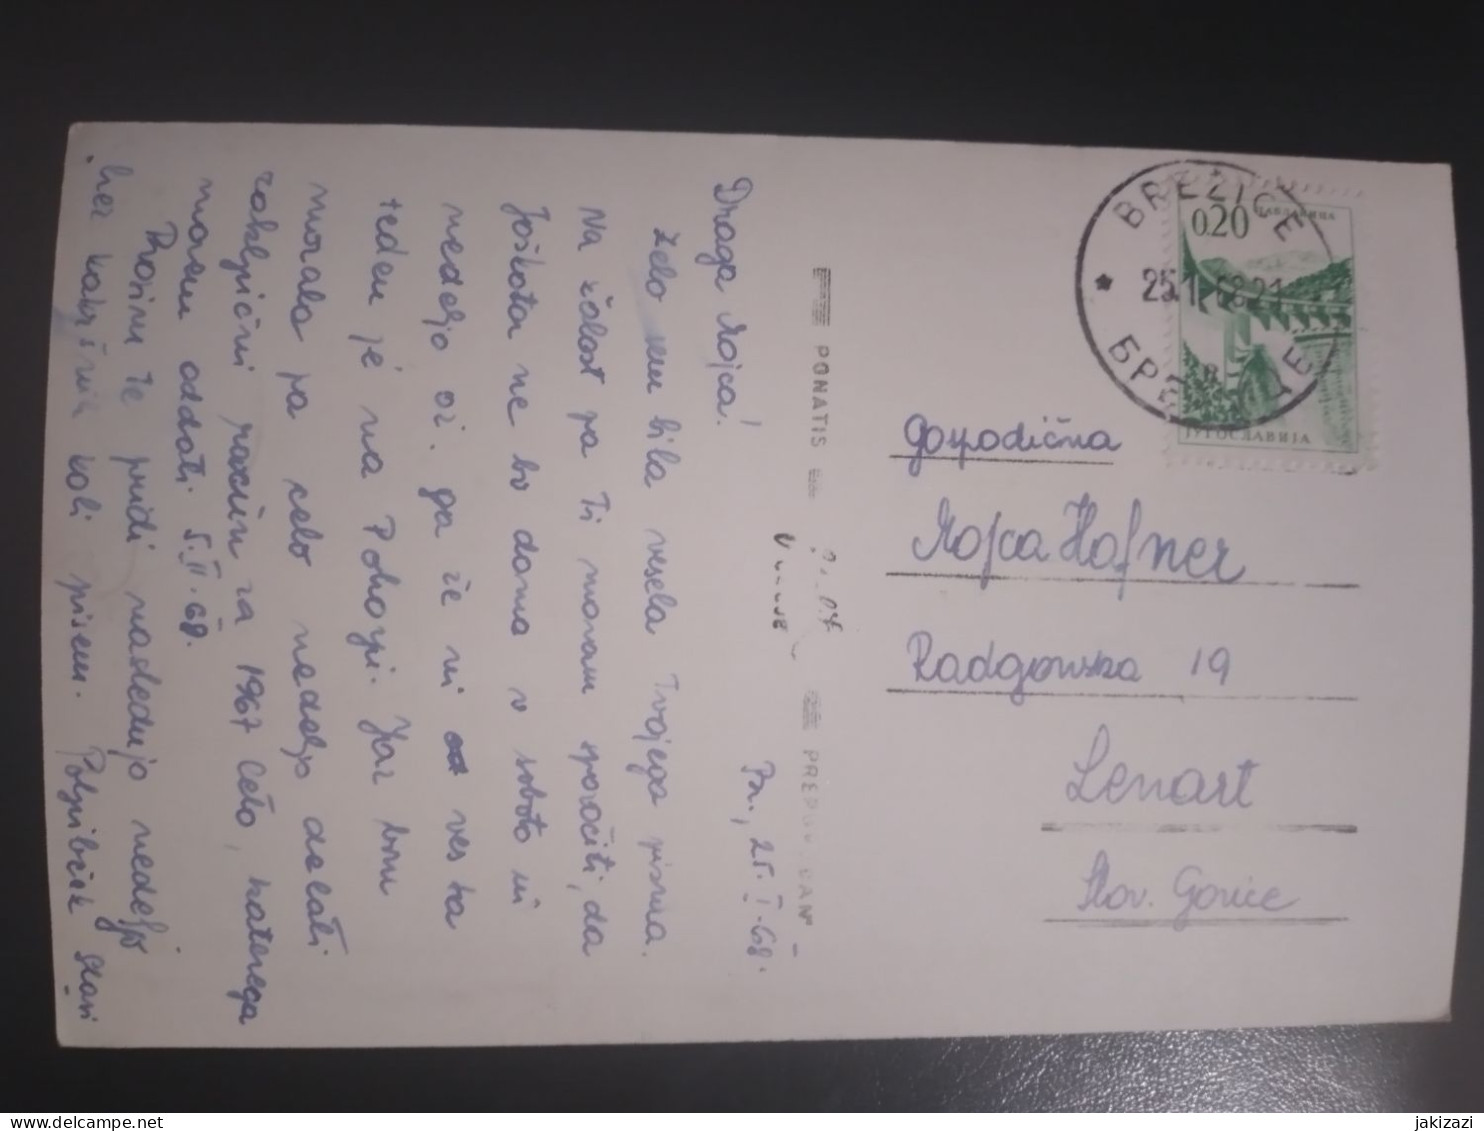 Br., 25. I. 68.
Draga Mojca!
Zelo sem bila vesela Tvojega pisma.
Na žalost pa Ti moram sporočiti, da
Joškota ne bo doma v soboto in
nedeljo oz. ga že ni ves ta
teden je na Pohorju. Jaz bom
morala pa celo nedeljo delati
zaključni račun za 1967 leto, katerega
moram oddati 5. II. 68.
Prosim te pridi naslednjo nedeljo
brez kakršnih koli pisem. Poljubček
PONATIS
PREPOVEDAN
BREŽICE
25.1.68.21
БРЕЖИЦЕ
0.20
ЈУГОСЛАВИЈА
Gospodična
Mojca Hafner
Radgonska 19
Lenart
Slov. Gorice
jakizazi